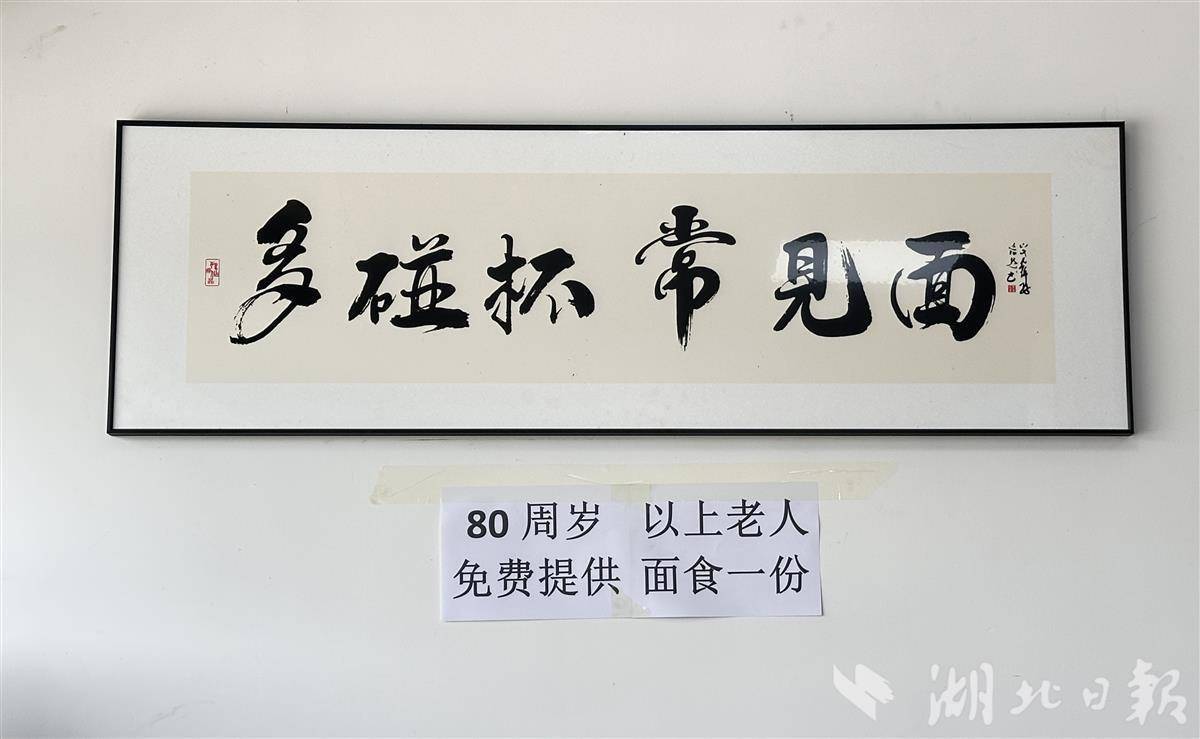 多碰杯 常见面
80周岁 以上老人
免费提供 面食一份
湖北日報